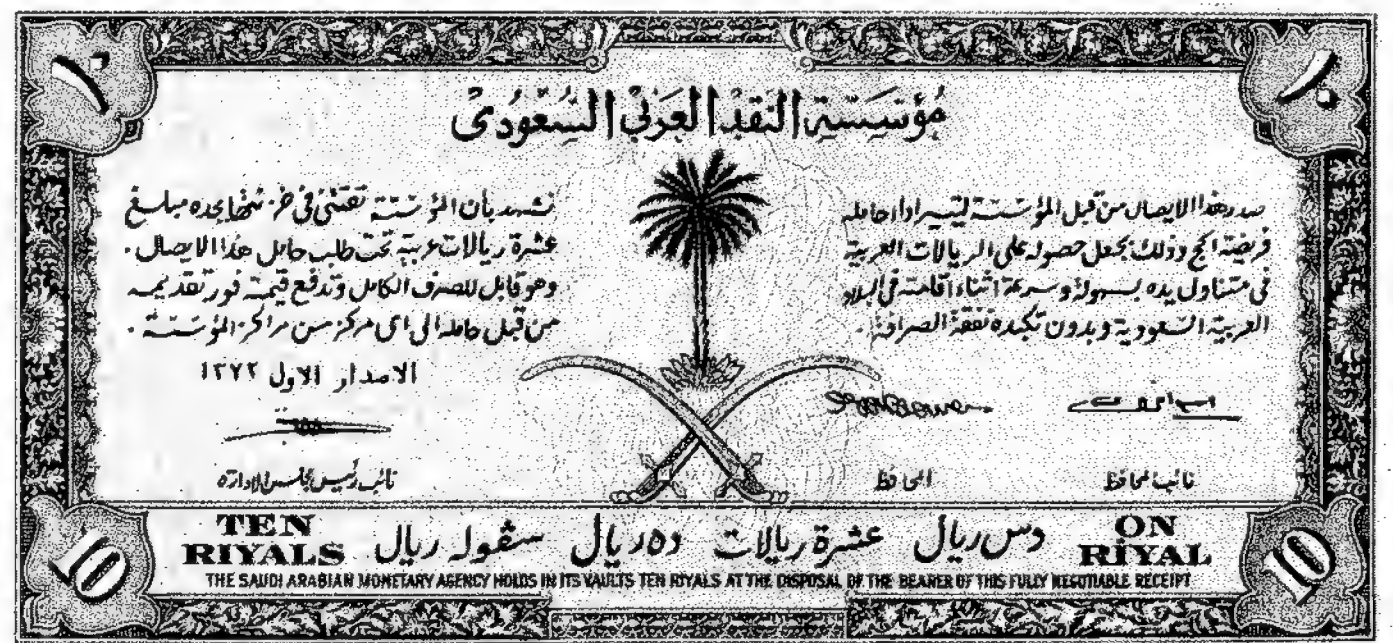 ١٠
١٠
مؤسسة النقد العربي السعودي
صدر هذا الايصال من قبل المؤسسة ليتيسر اداء حامله
فريضة الحج وذلك بجعل حصوله على الريالات العربية
في متناول يده بسهولة وسرعة اثناء اقامته في البلاد
العربية السعودية وبدون تكبده نفقة الصرافة .
نشهد بأن المؤسسة تقتني في خزينتها بجده مبلغ
عشرة ريالات عربية تحت طلب حامل هذا الايصال .
وهو قابل للصرف الكامل وتدفع قيمته فور تقديمه
من قبل حامله الى اى مركز من مراكز المؤسسة .
الاصدار الاول ١٣٧٢
نائب المحافظ
المحافظ
نائب رئيس مجلس الادارة
TEN RIYALS
دس ريال عشرة ريالات ده ريال سڤوله ريال
ON RİYAL
THE SAUDI ARABIAN MONETARY AGENCY HOLDS IN ITS VAULTS TEN RIYALS AT THE DISPOSAL OF THE BEARER OF THIS FULLY NEGOTIABLE RECEIPT
10
10